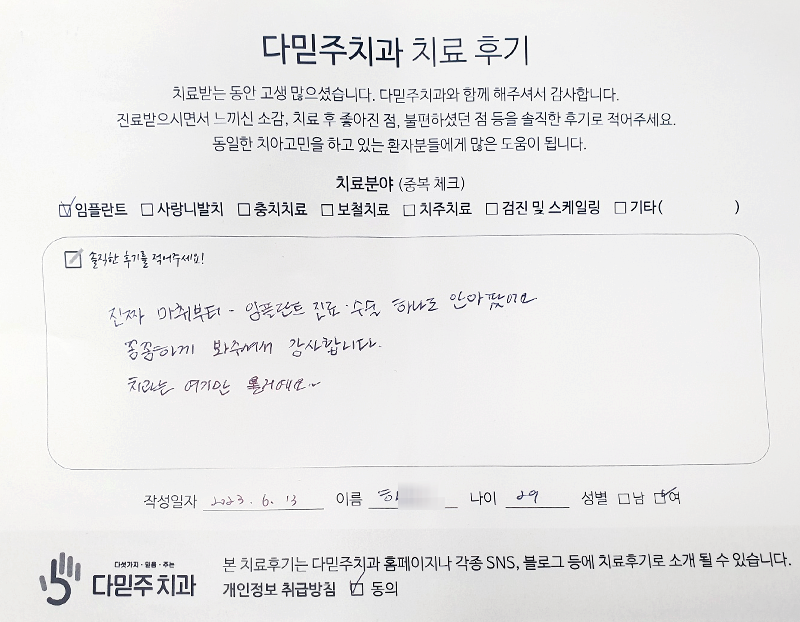 다믿주치과 치료 후기
치료받는 동안 고생 많으셨습니다. 다믿주치과와 함께 해주셔서 감사합니다.
진료받으시면서 느끼신 소감, 치료 후 좋아진 점, 불편하셨던 점 등을 솔직한 후기로 적어주세요.
동일한 치아고민을 하고 있는 환자분들에게 많은 도움이 됩니다.
치료분야 (중복 체크)
임플란트 사랑니발치 충치치료 보철치료 치주치료 검진 및 스케일링 기타( )
솔직한 후기를 적어주세요!
진짜 마취부터 - 임플란트 진료·수술 하나도 안아팠어요
꼼꼼하게 봐주셔서 감사합니다.
치과는 여기만 올거에요~
작성일자 2023. 6. 13 이름 나이 29 성별 남 여
다섯가지·믿음·주는
다믿주치과
본 치료후기는 다믿주치과 홈페이지나 각종 SNS, 블로그 등에 치료후기로 소개 될 수 있습니다.
개인정보 취급방침 동의